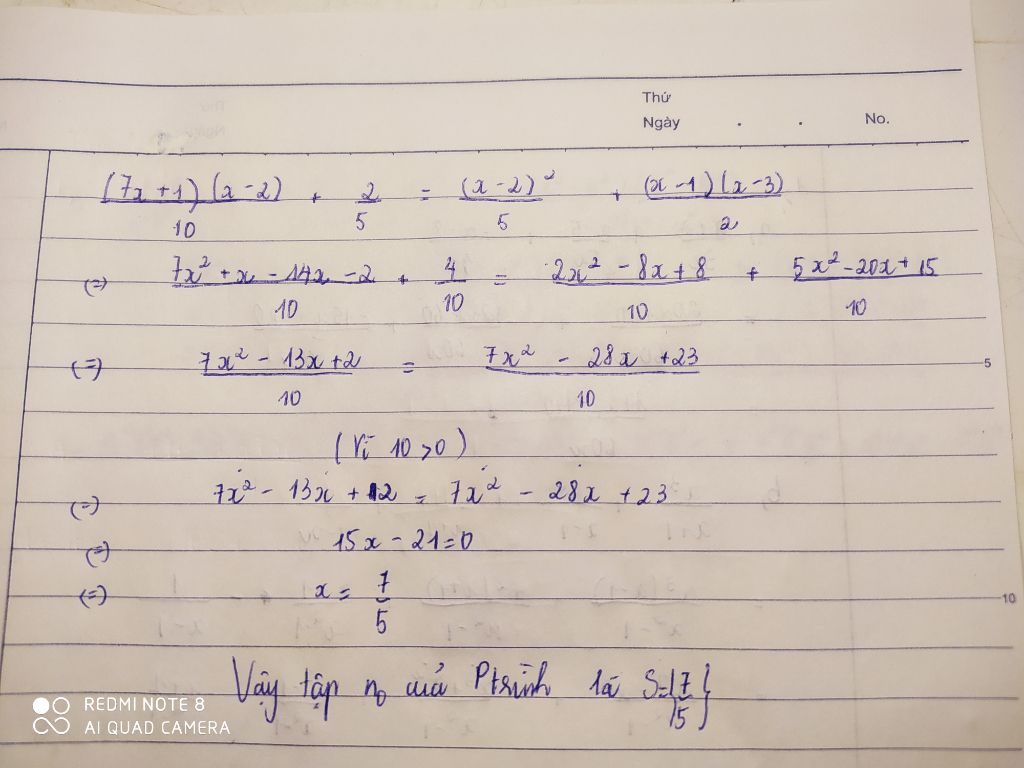 Thứ
Ngày . . No.
(7x+1)(x-2)/10 + 2/5 = (x-2)²/5 + (x-1)(x-3)/2
(=) 7x² + x - 14x - 2/10 + 4/10 = 2x² - 8x + 8/10 + 5x² - 20x + 15/10
(=) 7x² - 13x + 2/10 = 7x² - 28x + 23/10
5
(Vì 10 > 0)
(=) 7x² - 13x + 2 = 7x² - 28x + 23
(=) 15x - 21 = 0
(=) x = 7/5
10
Vậy tập no của Ptrình là S = {7/5}
REDMI NOTE 8
AI QUAD CAMERA